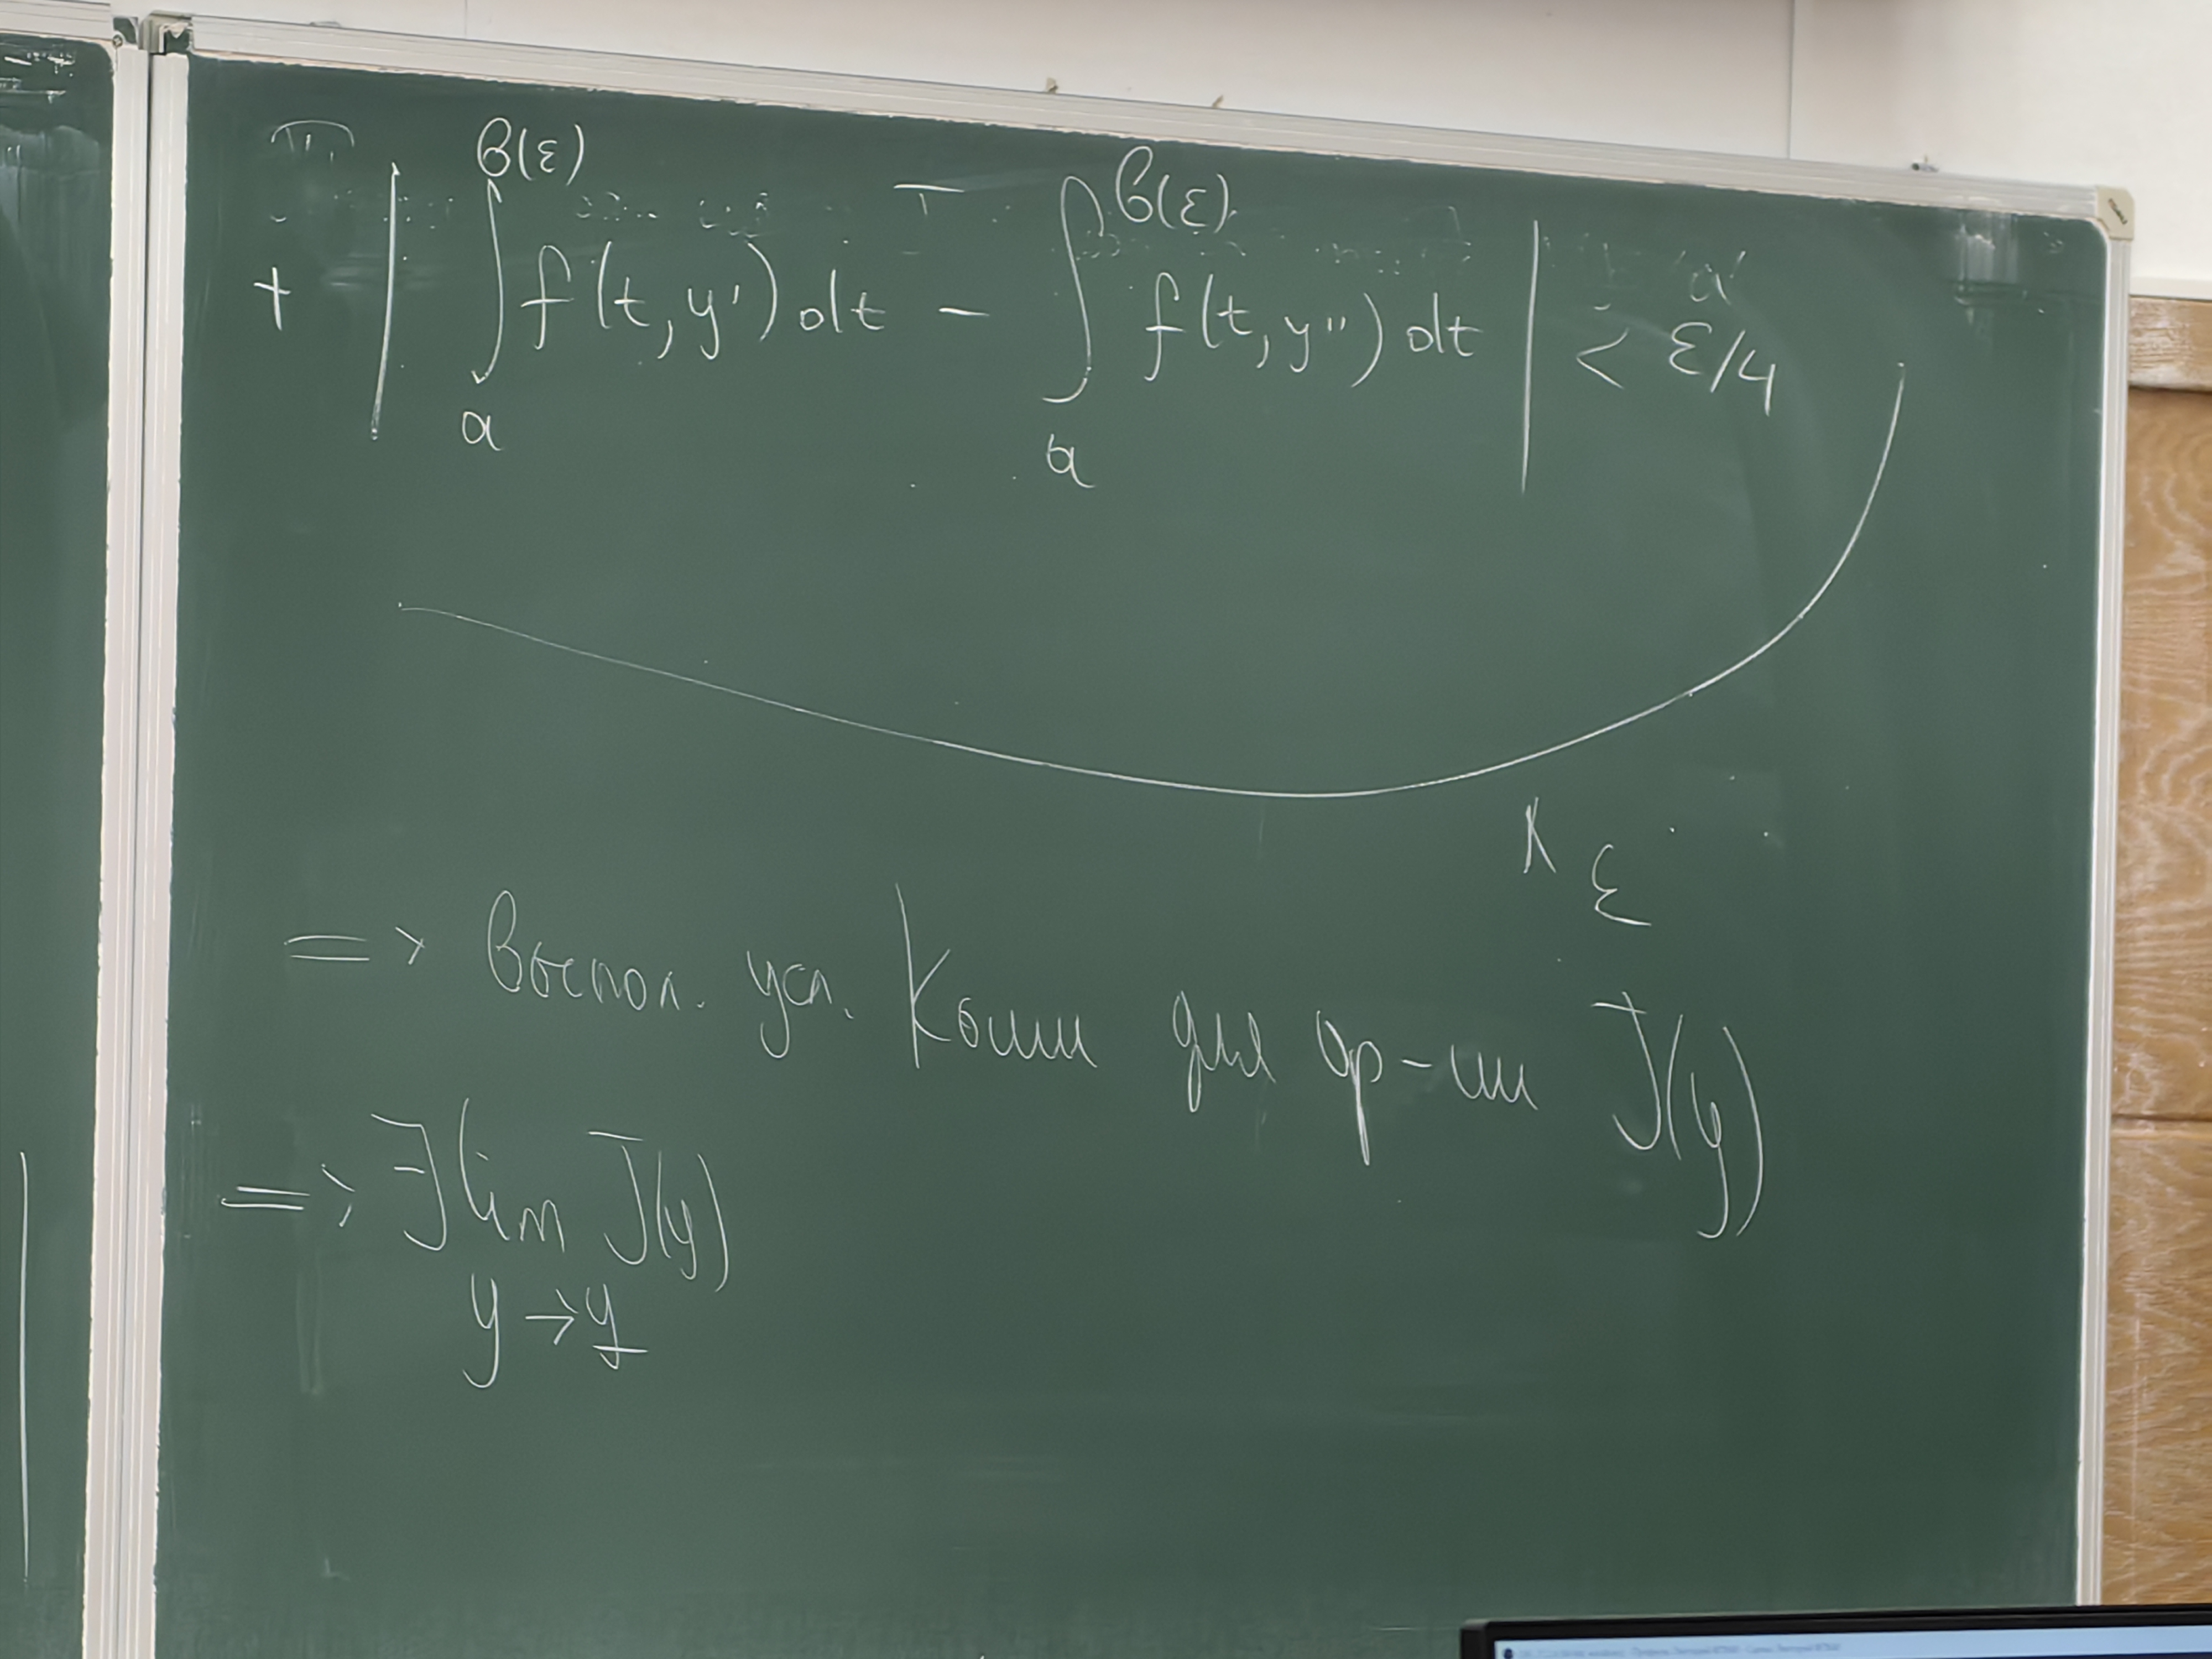 + | ∫_a^{в(ε)} f(t, y') dt - ∫_a^{в(ε)} f(t, y'') dt | < ε/4
∧ ε
=> выпол. усл. Коши для ф-ии J(y)
=> ∃ lim J(y)
y → y